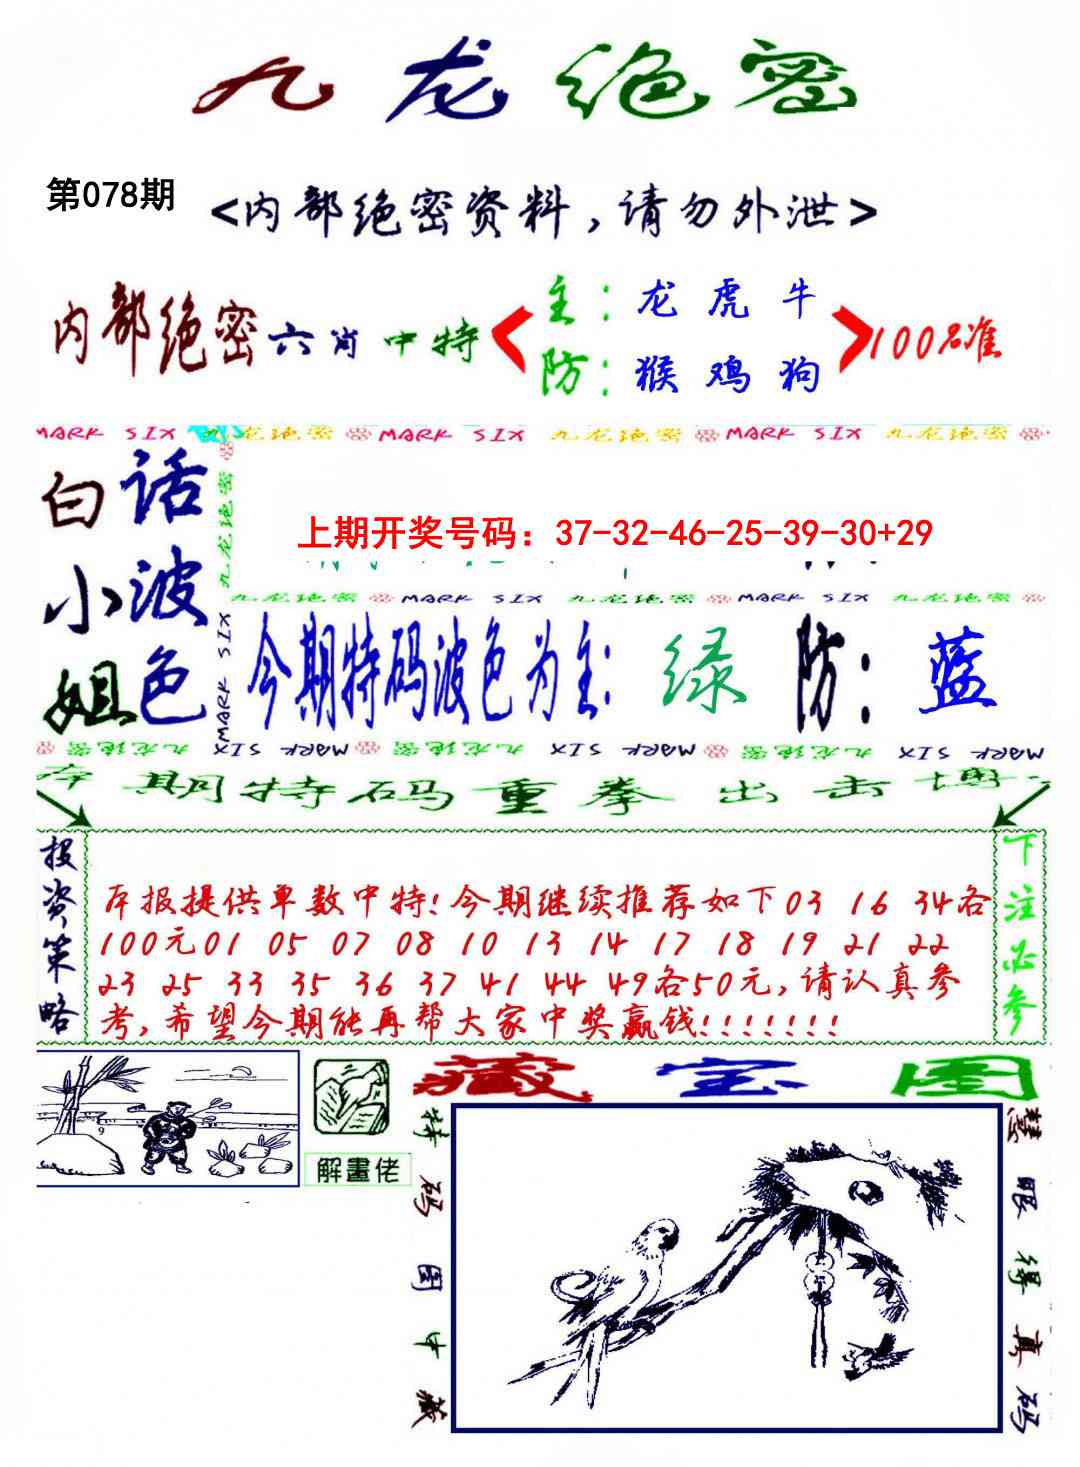 九龙绝密
第078期
<内部绝密资料,请勿外泄>
内部绝密六肖中特
主:龙 虎 牛
防:猴 鸡 狗
100%准
MARK SIX 九龙绝密 MARK SIX 九龙绝密 MARK SIX 九龙绝密
白小姐
话波色
九龙绝密 MARK SIX
上期开奖号码：37-32-46-25-39-30+29
九龙绝密 MARK SIX 九龙绝密 MARK SIX 九龙绝密
今期特码波色为主: 绿 防: 蓝
九龙绝密 MARK SIX 九龙绝密 MARK SIX 九龙绝密 MARK SIX
本期特码重拳出击博
投资策略
本报提供单数中特!今期继续推荐如下03 16 34各
100元01 05 07 08 10 13 14 17 18 19 21 22
23 25 33 35 36 37 41 44 49各50元,请认真参
考,希望今期能再帮大家中奖赢钱!!!!!!!
下注必参
9
解畫佬
藏宝图
特码图中藏
慧眼得真码